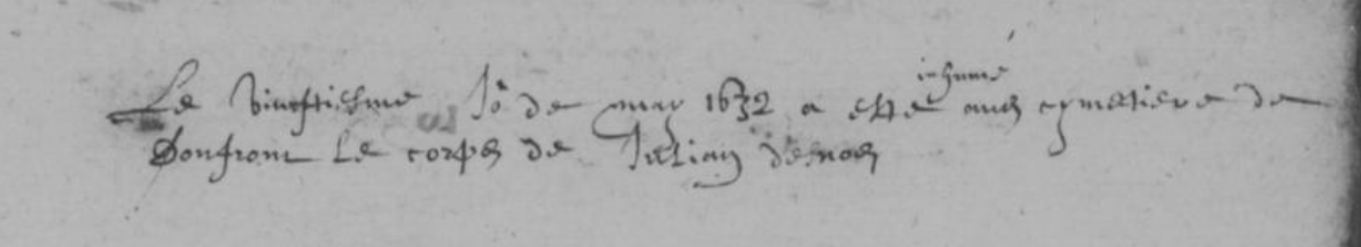 Le vingtiesme Jo de may 1632 a este inhumé aud cymetiere de
Donfront le corps de Julian